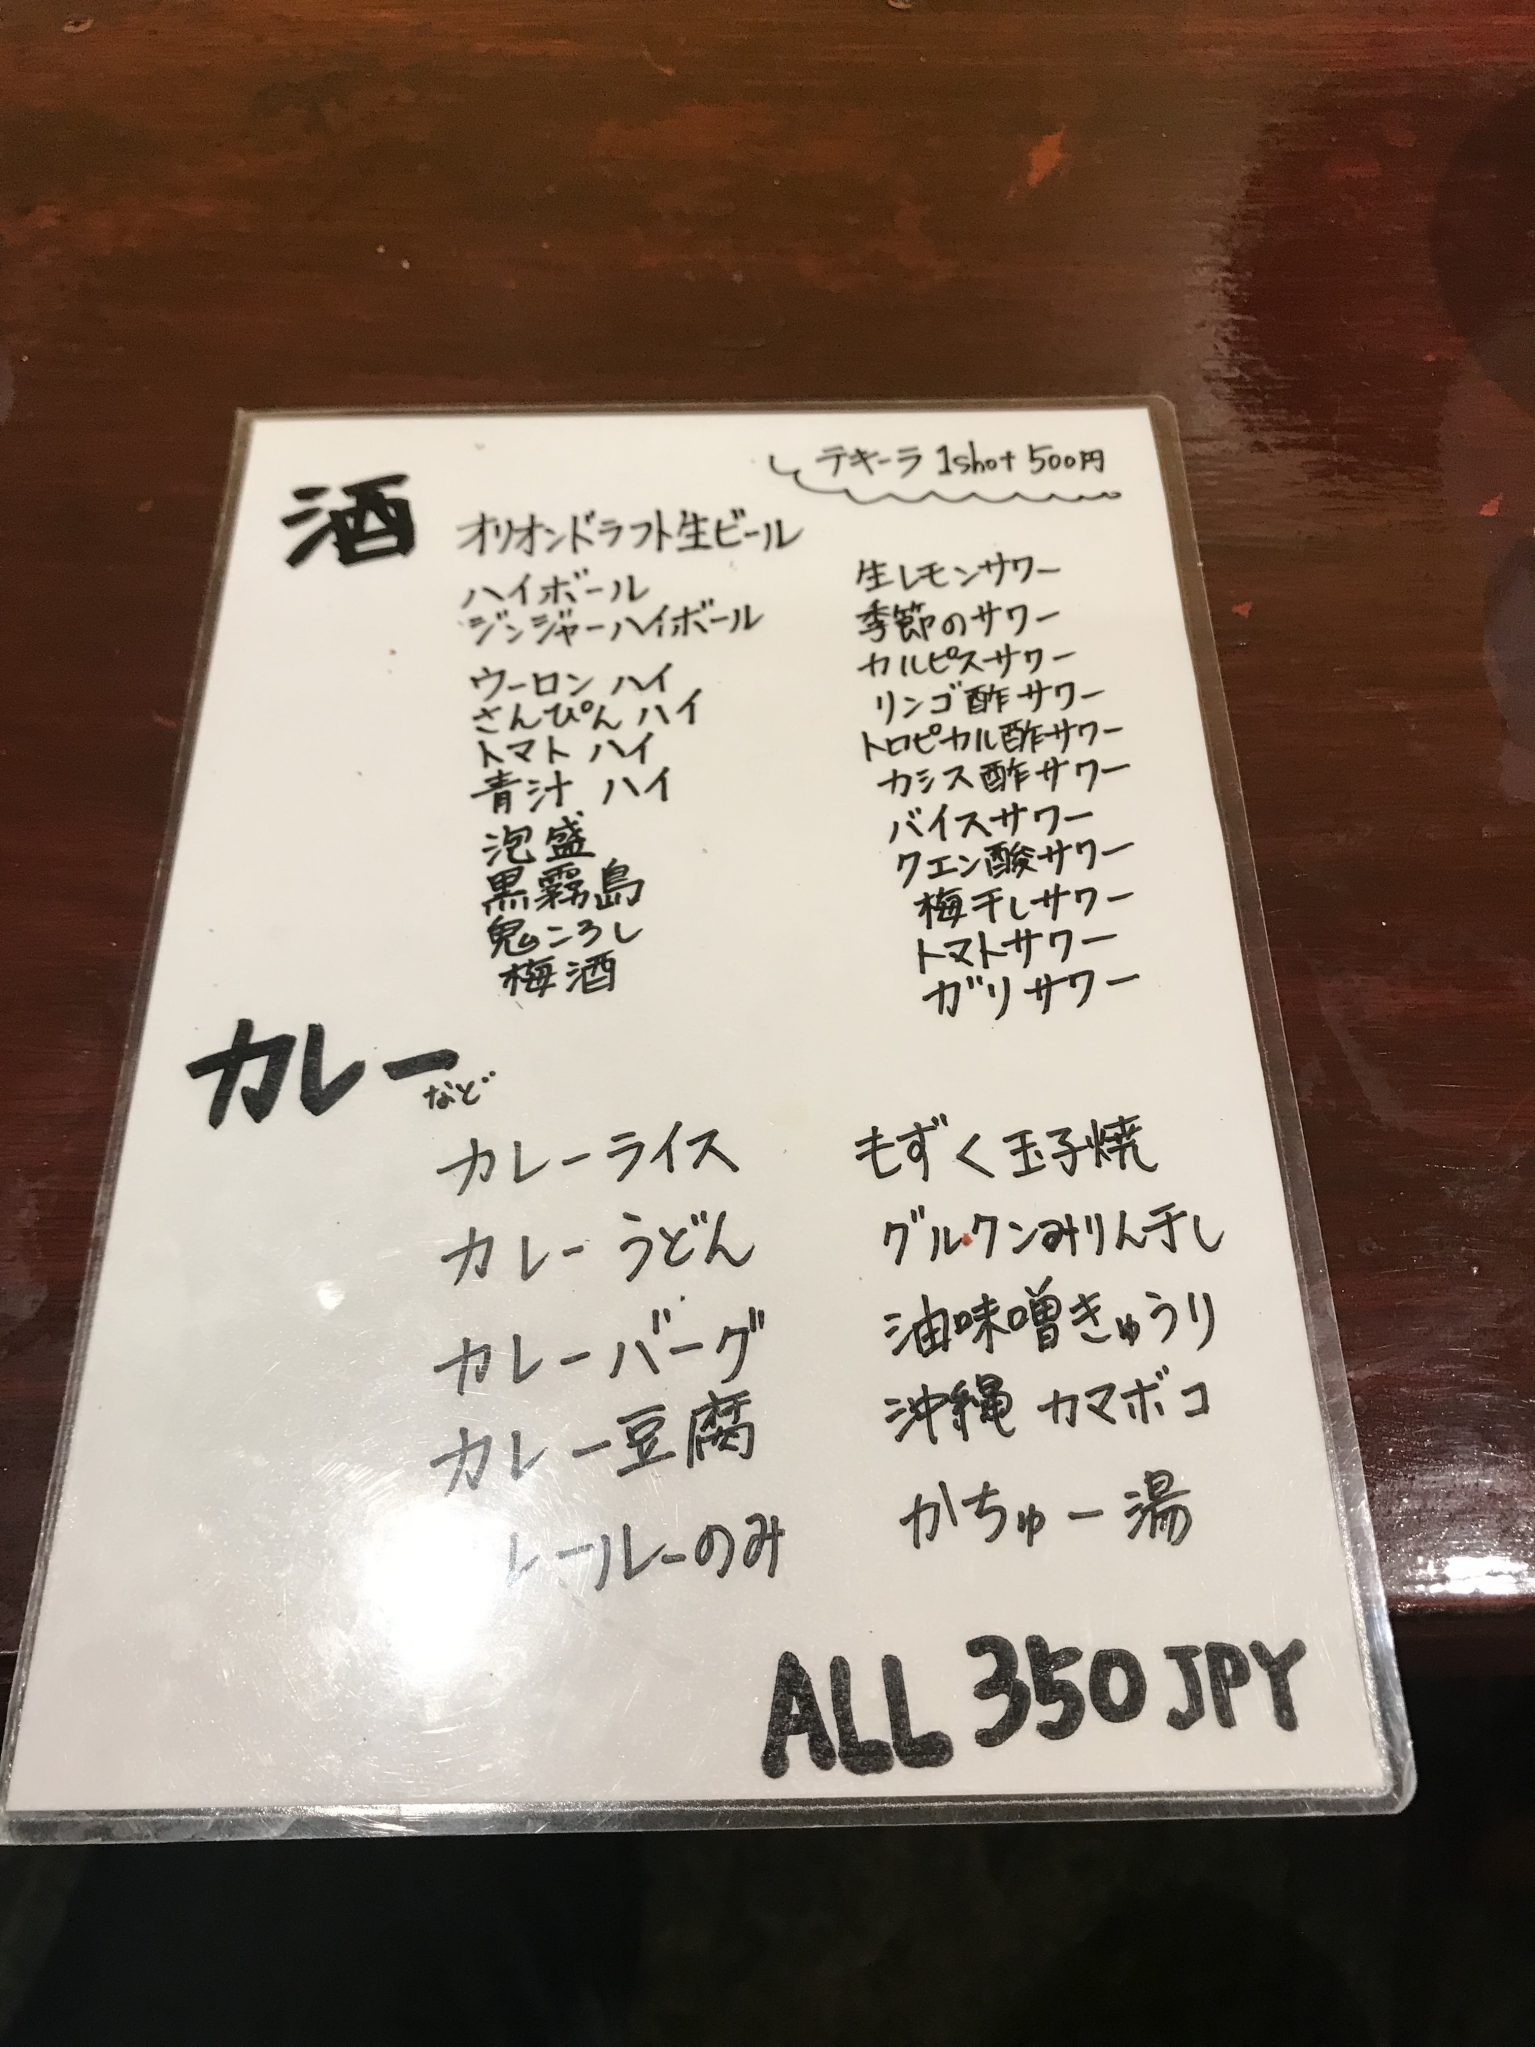 テキーラ 1shot 500円
酒
オリオンドラフト生ビール
ハイボール
ジンジャーハイボール
ウーロン ハイ
さんぴん ハイ
トマト ハイ
青汁 ハイ
泡盛
黒霧島
鬼ころし
梅酒
生レモンサワー
季節のサワー
カルピスサワー
リンゴ酢サワー
トロピカル酢サワー
カシス酢サワー
バイスサワー
クエン酸サワー
梅干しサワー
トマトサワー
ガリサワー
カレー
など
カレーライス
カレーうどん
カレーバーグ
カレー豆腐
レールーのみ
もずく玉子焼
グルクンみりん干し
油味噌きゅうり
沖縄 カマボコ
かちゅー湯
ALL 350 JPY